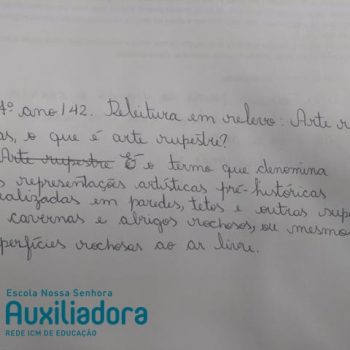 4º ano / 42. Releitura em relevo: Arte r
as, o que é arte rupestre?
Arte rupestre É o termo que denomina
s representações artísticas pré-históricas
ealizadas em paredes, tetos e outras supe
cavernas e abrigos rochosos, ou mesmo
perfícies rochosas ao ar livre.
Escola Nossa Senhora
Auxiliadora
REDE ICM DE EDUCAÇÃO